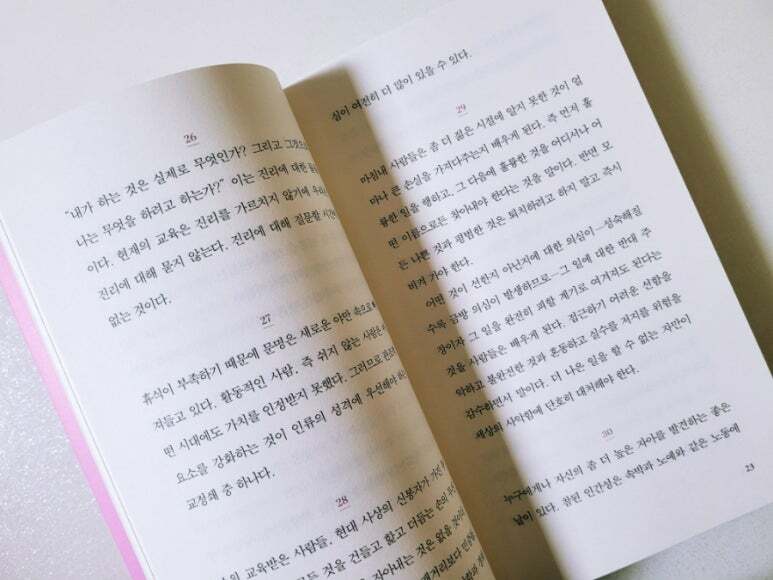 26
“내가 하는 것은 실제로 무엇인가? 그리고 그것으로
나는 무엇을 하려고 하는가?” 이는 진리에 대한
이다. 현재의 교육은 진리를 가르치지 않기에 우리
진리에 대해 묻지 않는다. 진리에 대해 질문할 시간이
없는 것이다.
27
휴식이 부족하기 때문에 문명은 새로운 야만 속으로
져들고 있다. 활동적인 사람, 즉 쉬지 않는 사람은
떤 시대에도 가치를 인정받지 못했다. 그러므로
요소를 강화하는 것이 인류의 성격에 우선해야
교정책 중 하나다.
28
교육받은 사람들, 현대 사상의 신봉자가
것을 건들고 핥고 더듬는 손의
자아내는 것은 없을
23
심이 여전히 더 많이 있을 수 있다.
29
마침내 사람들은 좀 더 젊은 시절에 알지 못한 것이 얼
마나 큰 손실을 가져다주는지 배우게 된다. 즉 먼저 훌
륭한 일을 행하고, 그 다음에 훌륭한 것을 어디서나 어
떤 이름으로든 찾아내야 한다는 것을 말이다. 반면 모
든 나쁜 것과 평범한 것은 퇴치하려고 하지 말고 즉시
비켜 가야 한다.
어떤 것이 선한지 아닌지에 대한 의심이—성숙해질
수록 금방 의심이 발생하므로—그 일에 대한 반대 주
장이자 그 일을 완전히 피할 계기로 여겨져도 된다는
것을 사람들은 배우게 된다. 접근하기 어려운 선함을
악하고 불완전한 것과 혼동하고 실수를 저지를 위험을
감수하면서 말이다. 더 나은 일을 할 수 없는 자만이
세상의 사악함에 단호히 대처해야 한다.
30
누구에게나 자신의 좀 더 높은 자아를 발견하는 좋은
날이 있다. 참된 인간성은 속박과 노예와 같은 노동에